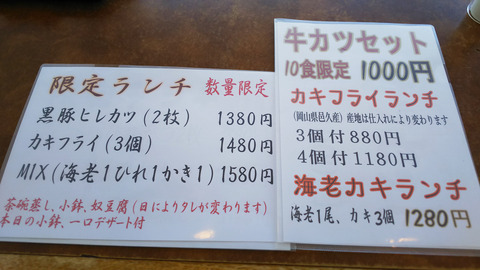 限定ランチ 数量限定
黒豚ヒレカツ(2枚) 1380円
カキフライ(3個) 1480円
MIX(海老1ひれ1かき1) 1580円
茶碗蒸し、小鉢、奴豆腐(日によりタレが変わります)
本日の小鉢、一口デザート付
牛カツセット
10食限定 1000円
カキフライランチ
(岡山県邑久産)産地は仕入れにより変わります
3個付880円
4個付1180円
海老カキランチ
海老1尾、カキ3個 1280円